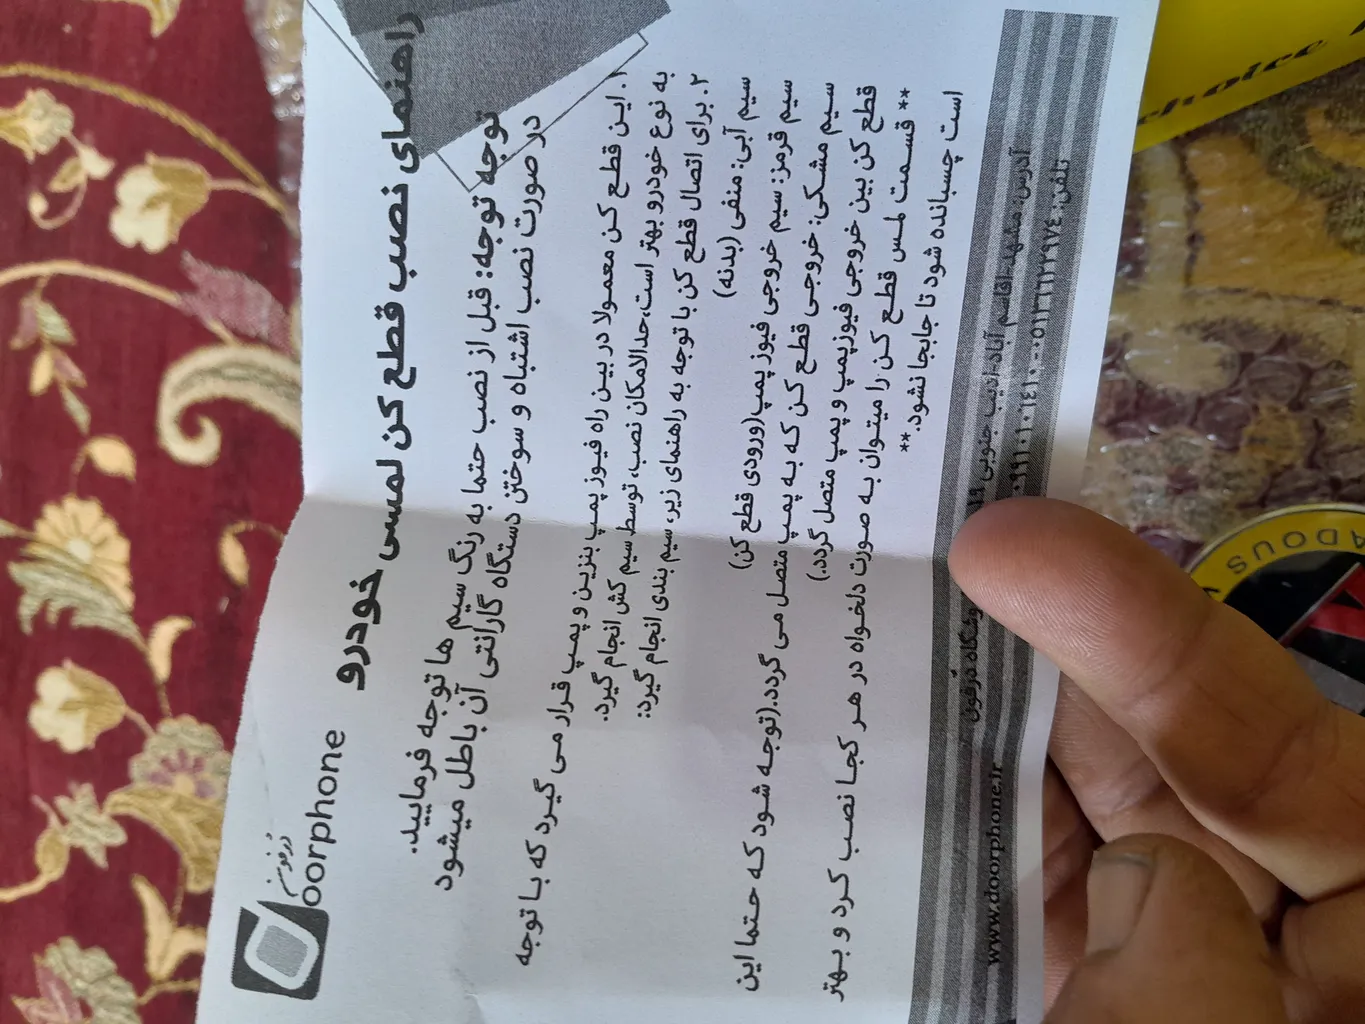 دُرفون
Doorphone
راهنمای نصب قطع کن لمسی خودرو
توجه توجه: قبل از نصب حتما به رنگ سیم ها توجه فرمایید.
در صورت نصب اشتباه و سوختن دستگاه گارانتی آن باطل میشود
۱. این قطع کن معمولا در بین راه فیوز پمپ بنزین و پمپ قرار می گیرد که با توجه
به نوع خودرو بهتر است،حدالامکان نصب، توسط سیم کش انجام گیرد.
۲. برای اتصال قطع کن با توجه به راهنمای زیر، سیم بندی انجام گیرد:
سیم آبی: منفی (بدنه)
سیم قرمز: سیم خروجی فیوز پمپ(ورودی قطع کن)
سیم مشکی: خروجی قطع کن که به پمپ متصل می گردد.(توجه شود که حتما این
قطع کن بین خروجی فیوزپمپ و پمپ متصل گردد.)
** قسمت لمس قطع کن را میتوان به صورت دلخواه در هر کجا نصب کرد و بهتر
است چسبانده شود تا جابجا نشود.**
آدرس: مشهد-قاسم آباد-ادیب جنوبی ۱۹ دُرفون
تلفن: ۰۵۱۳۶۶۲۲۹۷۴-۰۹۹۱۰۱۰۶۴۱۰
www.doorphone.ir
choice
ADOUS